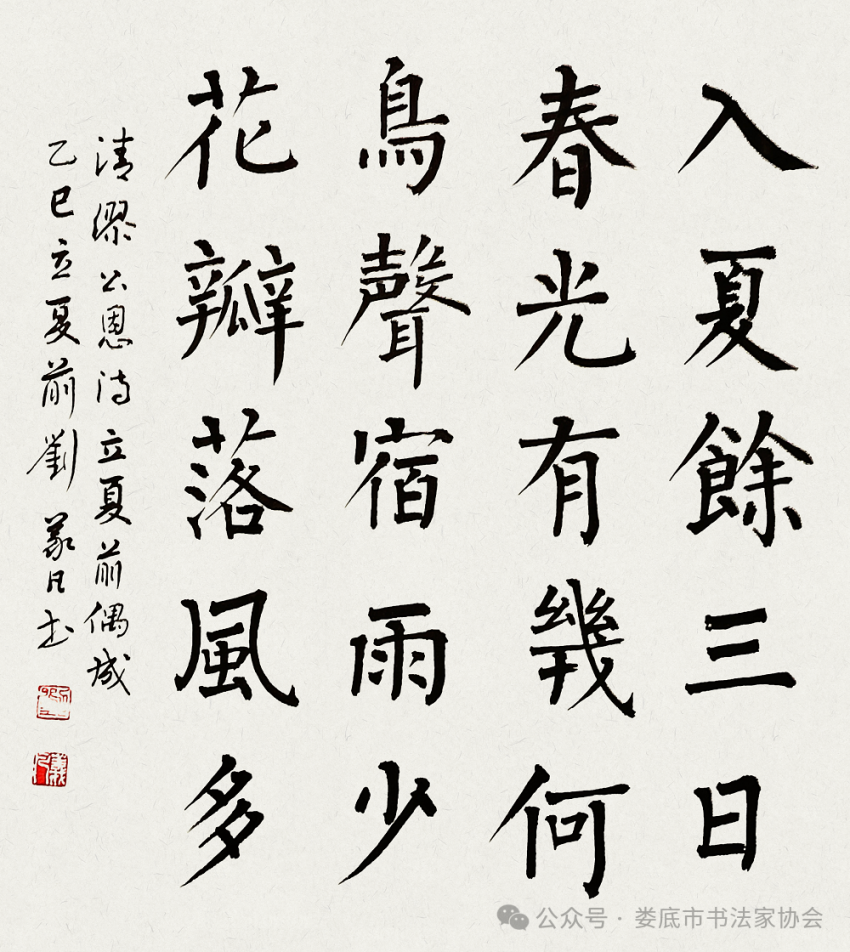 入夏餘三日
春光有幾何
鳥聲宿雨少
花瓣落風多
清繆公恩詩立夏前偶成
乙巳立夏前劉義凡書
公众号·娄底市书法家协会